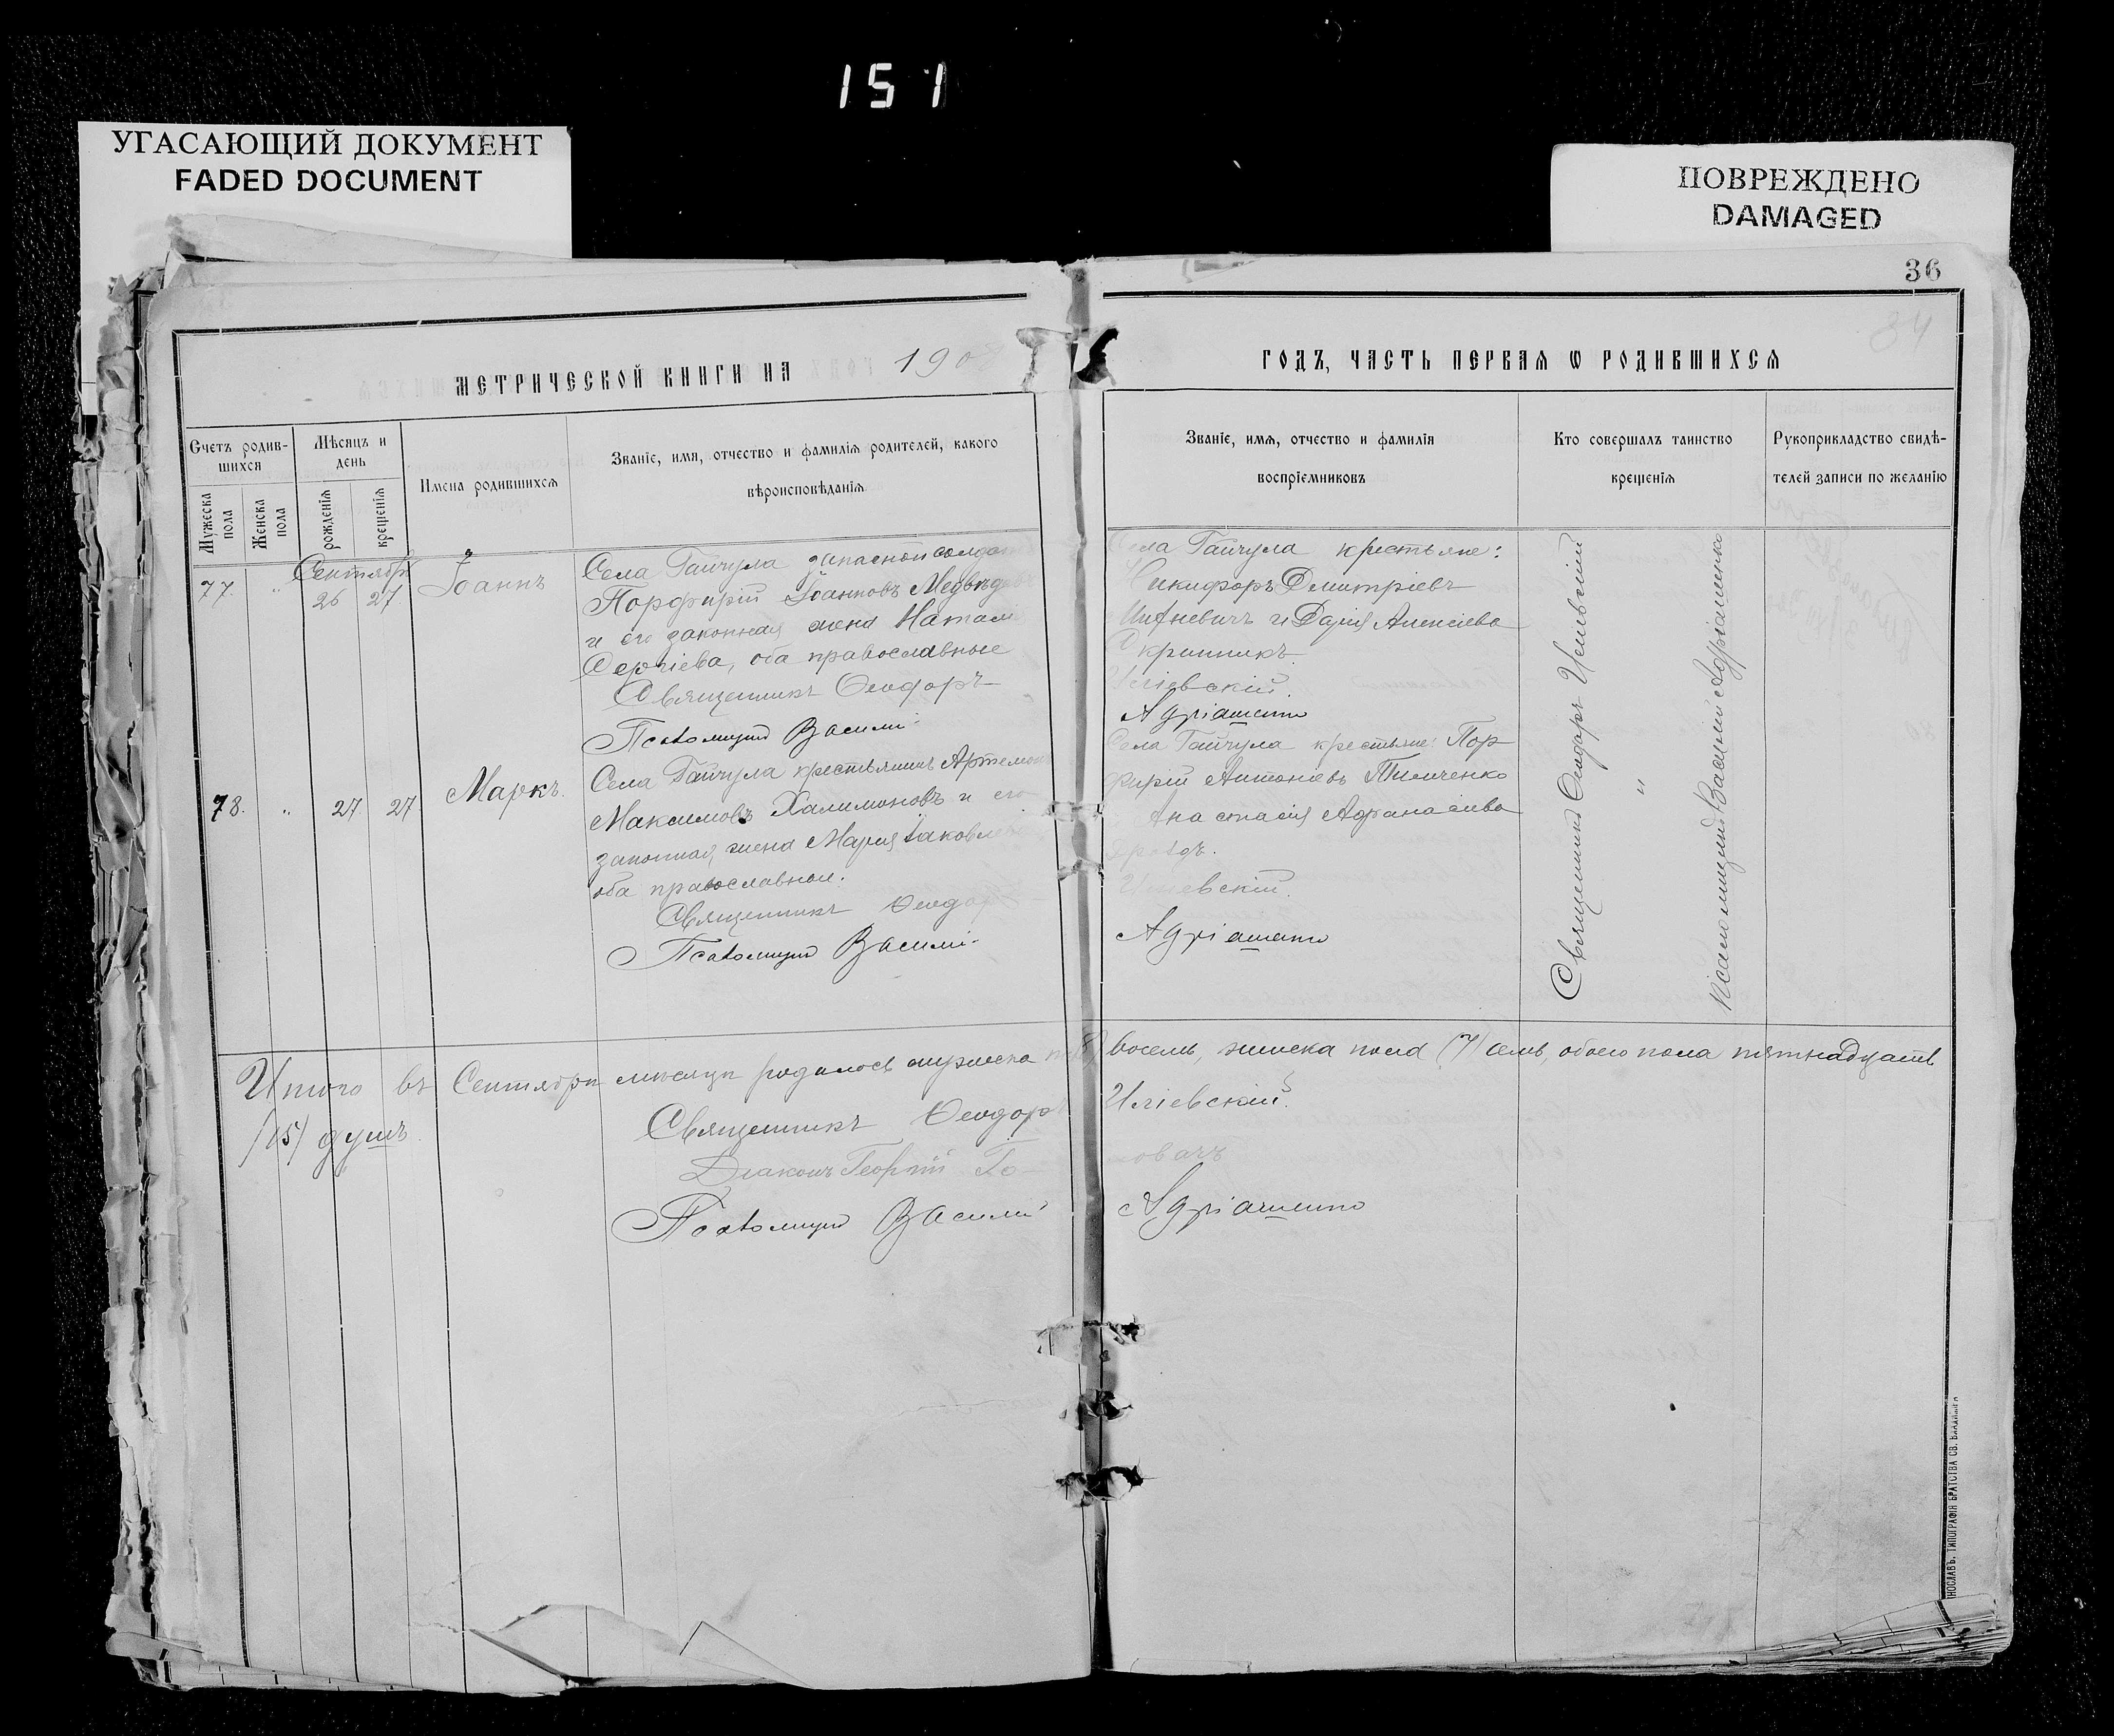 151
УГАСАЮЩИЙ ДОКУМЕНТ
FADED DOCUMENT
ПОВРЕЖДЕНО
DAMAGED
36
34
МЕТРИЧЕСКОЙ КНИГИ НА 190
ГОДЪ, ЧАСТЬ ПЕРВАЯ Ѡ РОДИВШИХСЯ
Счетъ родив-
шихся
Мужеска
пола
Женска
пола
Мѣсяцъ и
день
рожденія
крещенія
Имена родившихся
Званіе, имя, отчество и фамилія родителей, какого
вѣроисповѣданія
Званіе, имя, отчество и фамилія
воспріемниковъ
Кто совершалъ таинство
крещенія
Рукоприкладство свидѣ-
телей записи по желанію
Сентября
77. " 26 27
Іоаннъ
Села Гайчула запасной солдатъ
Порфирій Іоанновъ Медвѣд
и его законная жена Натал
Сергіева, оба православные
Священникъ Ѳеодоръ
Псаломщикъ Василій
Села Гайчула крестьяне:
Никифоръ Дмитріевъ
и Дарія Алексіева
Скрипникъ.
Адріаненко
78. " 27 27
Маркъ.
Села Гайчула крестьянинъ Артемонъ
Максимовъ Халимоновъ и его
законная жена Марія Іаковлева
оба православные.
Священникъ Ѳеодоръ
Псаломщикъ Василій
Села Гайчула крестьяне: Пор-
фирій Антоніевъ Тимченко
Анастасія Аѳанасіева
Адріаненко
Священникъ Ѳеодоръ
"
Псаломщикъ Василій Адріаненко
Итого въ Сентябрѣ мѣсяцѣ родилось мужеска восемь, женска пола (7) семь, обоего пола пятнадцать
/15/ душъ.
Священникъ Ѳеодоръ
Діаконъ Георгій
Псаломщикъ Василій Адріаненко
НОСЛАВЪ, ТИПОГРАФІЯ БРАТСТВА СВ. ВЛАДИМІРА